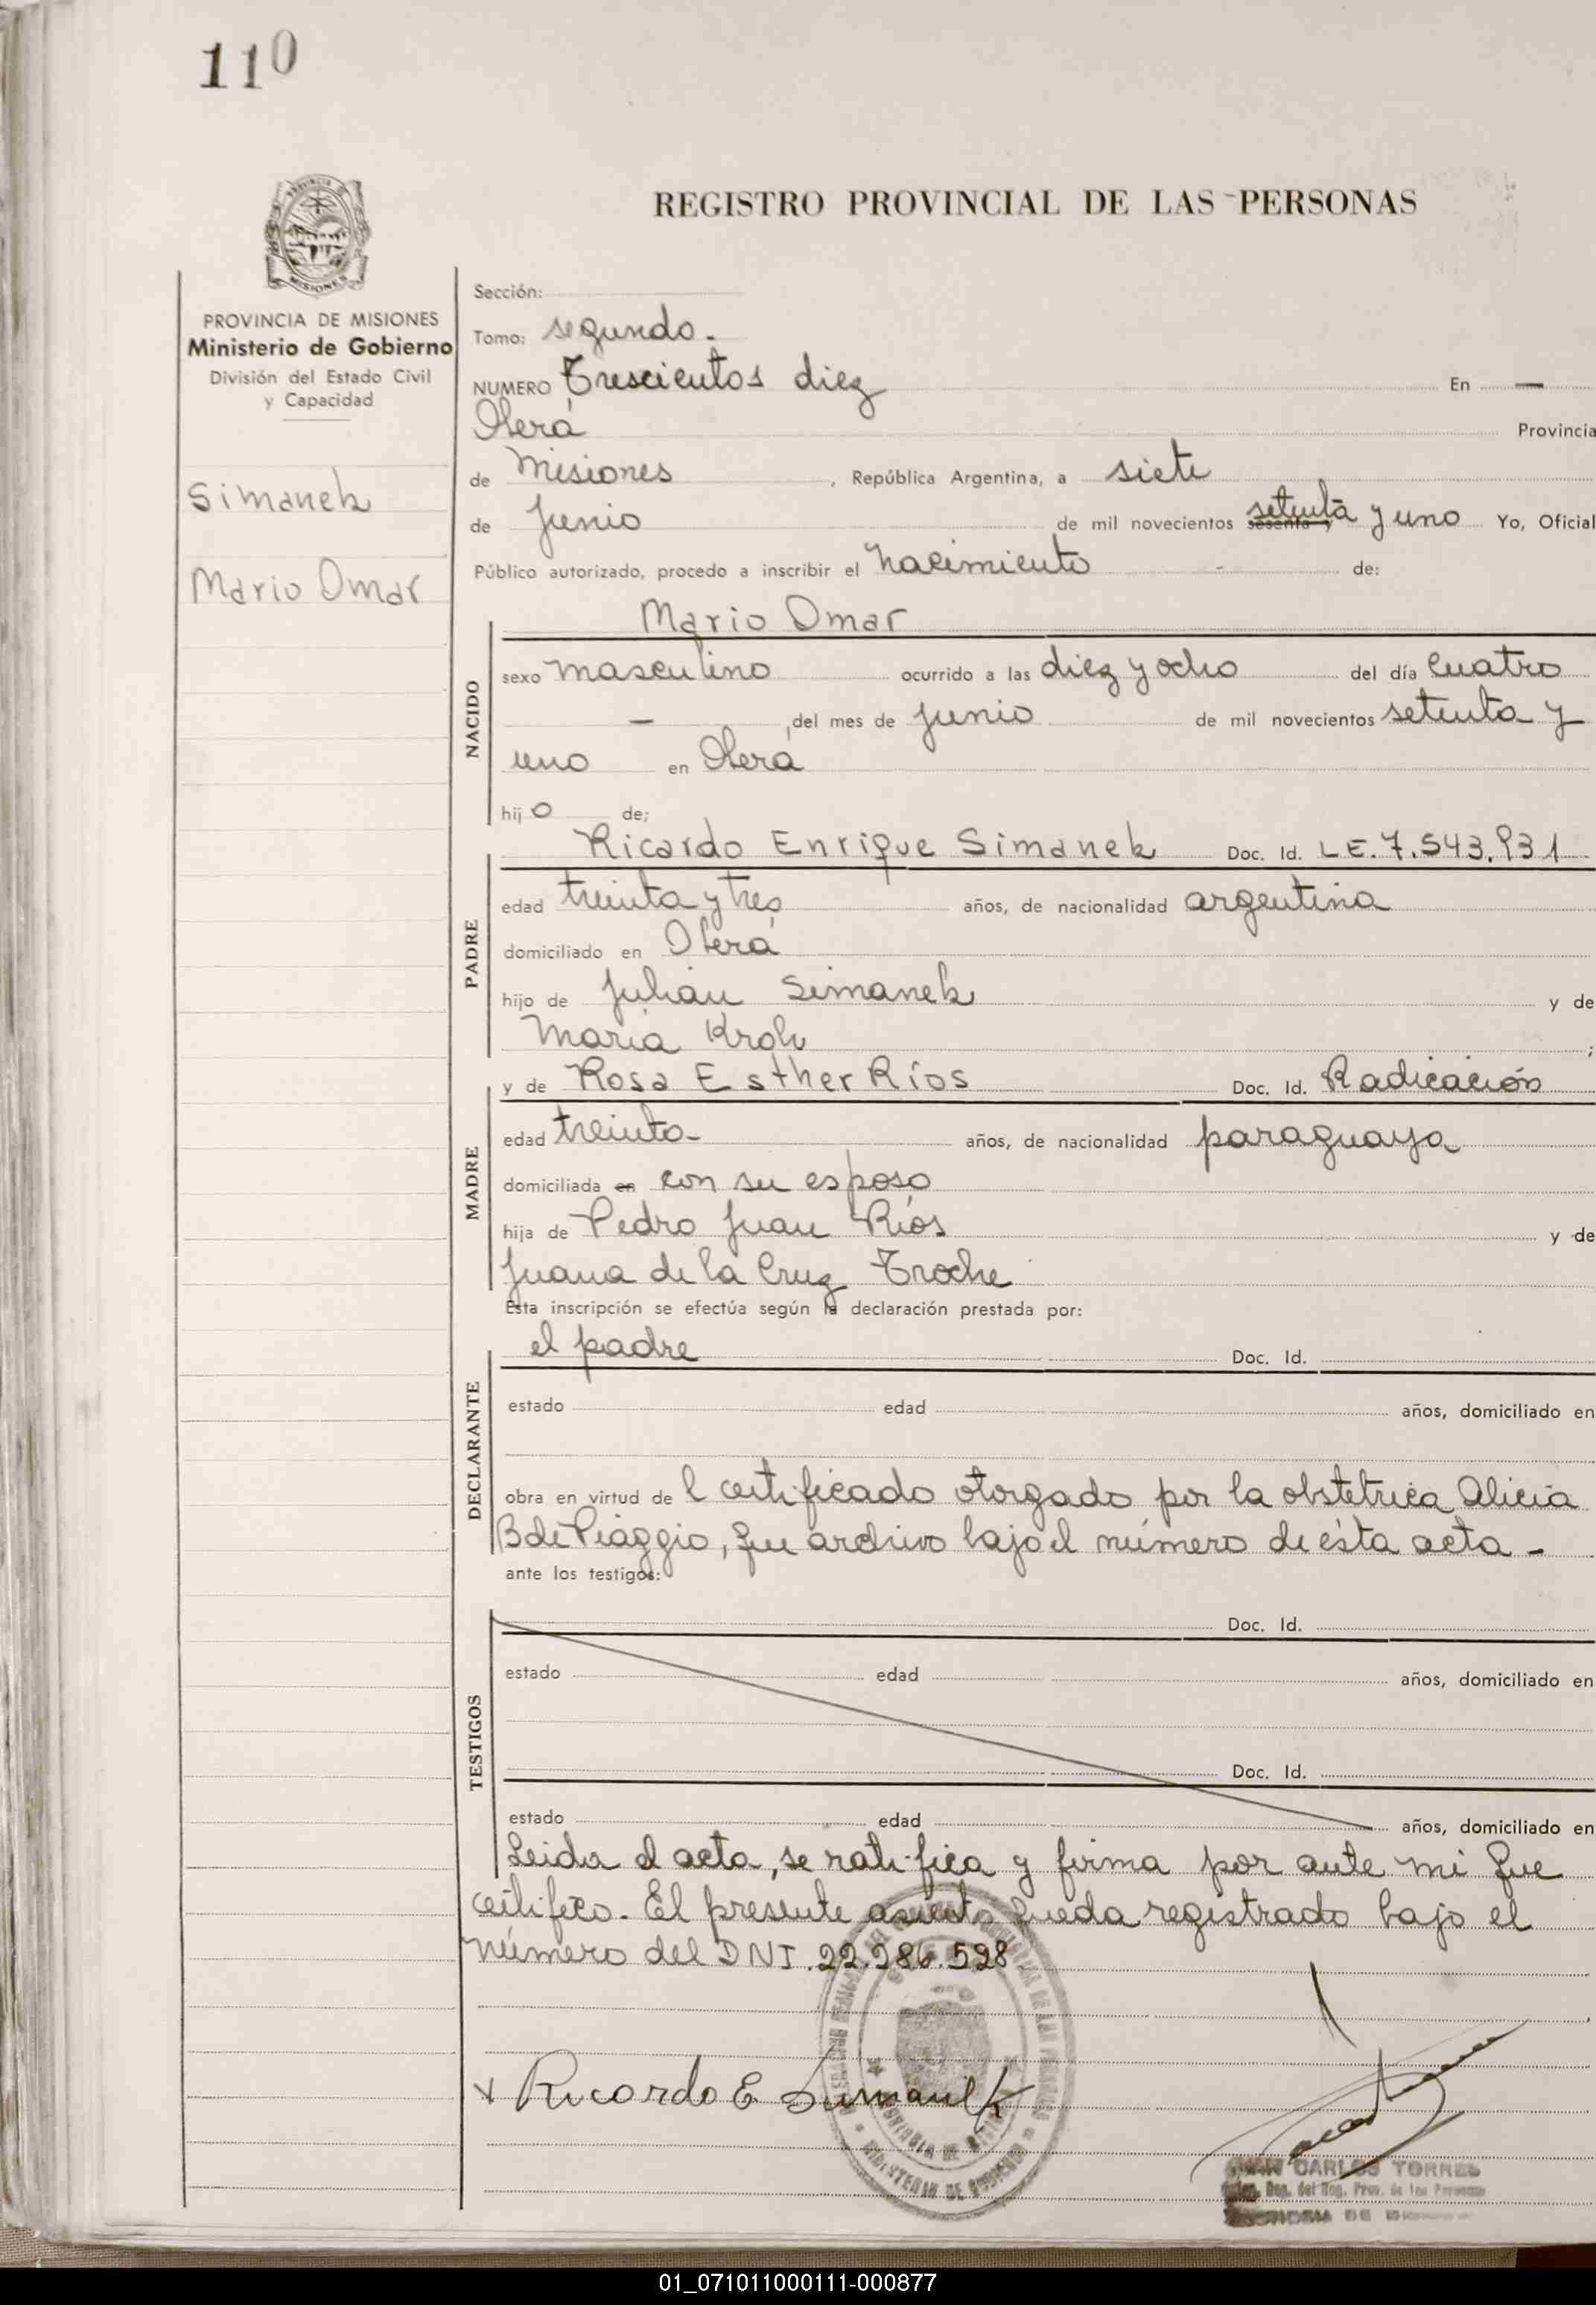 110
MISIONES
REGISTRO PROVINCIAL DE LAS PERSONAS
PROVINCIA DE MISIONES
Ministerio de Gobierno
División del Estado Civil
y Capacidad
Simanek
Mario Omar
Sección:
Tomo: segundo.
NUMERO Trescientos diez En —
Oberá Provincia
de Misiones, República Argentina, a siete
de Junio de mil novecientos sesenta y setenta y uno Yo, Oficial
Público autorizado, procedo a inscribir el nacimiento - de:
Mario Omar
NACIDO
sexo masculino ocurrido a las diez y ocho del día cuatro
— ,del mes de junio de mil novecientos setenta y
uno en Oberá
hijo de;
Ricardo Enrique Simanek Doc. Id. LE. 7.543.931
PADRE
edad treinta y tres años, de nacionalidad argentina
domiciliado en Oberá
hijo de Julian Simanek y de
Maria Kroh ;
y de Rosa Esther Ríos Doc. Id. Radicación
MADRE
edad treinta- años, de nacionalidad paraguaya
domiciliada en con su esposo
hija de Pedro Juan Ríos y de
Juana de la Cruz Troche
Esta inscripción se efectúa según la declaración prestada por:
el padre Doc. Id.
DECLARANTE
estado edad años, domiciliado en
obra en virtud de l certificado otorgado por la obstetrica Alicia
B de Piaggio, que archivo bajo el número de ésta acta -
ante los testigos:
Doc. Id.
TESTIGOS
estado edad años, domiciliado en
Doc. Id.
estado edad años, domiciliado en
Leida el acta, se ratifica y firma por ante mi que
certifico. El presente asiento queda registrado bajo el
número del DNI. 22.286.528
Ricardo E Simanek
MINISTERIO DE GOBIERNO
JUAN CARLOS TORRES
Deg. del Reg. Prov. de las Personas
01_071011000111-000877